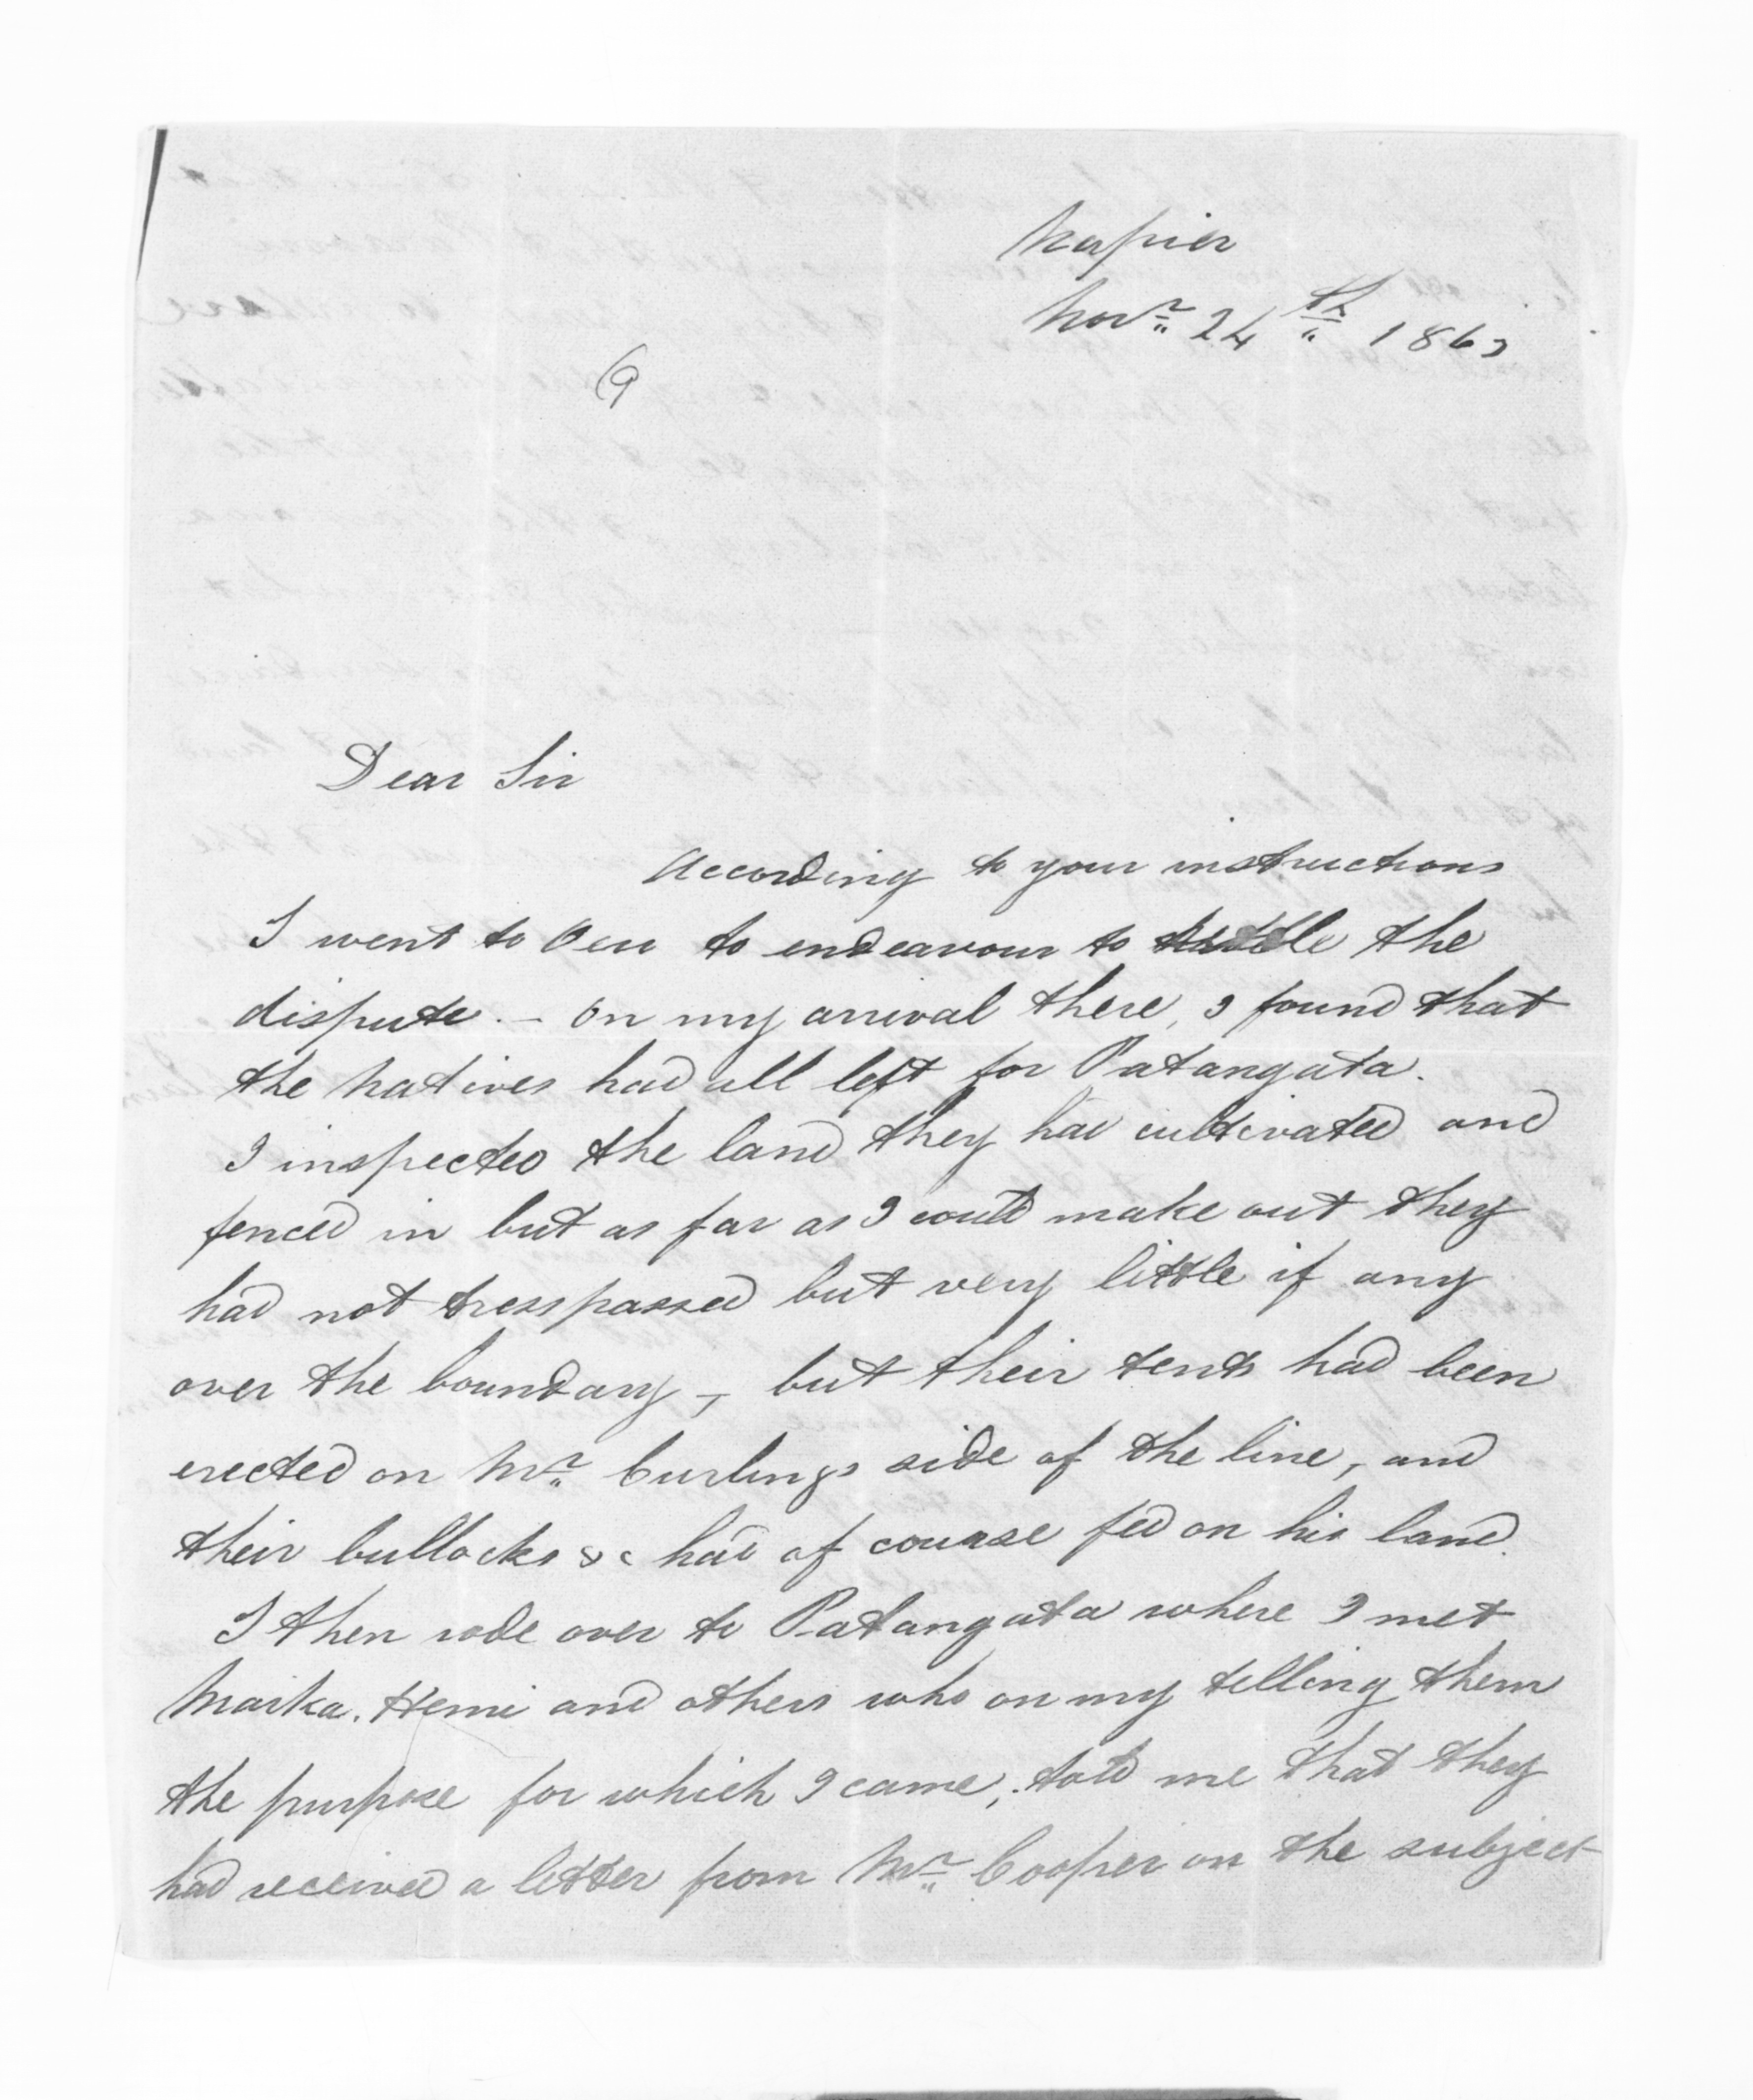 Napier
Novr 24th 1863
9
Dear Sir
According to your instructions
I went to Oeru to endeavour to settle the
dispute. – On my arrival there, I found that
the Natives had all left for Patangata.
I inspected the land they had cultivated and
fenced in but as far as I could make out they
had not tresspassed but very little if any
over the boundary –, but their tents had been
erected on Mr Curlings side of the line, and
their bullocks &c had of course fed on his land.
I then rode over to Patangata where I met
Maika. Hemi and others who on my telling them
the purpose for which I came, told me that they
had received a letter from Mr Cooper on the subject